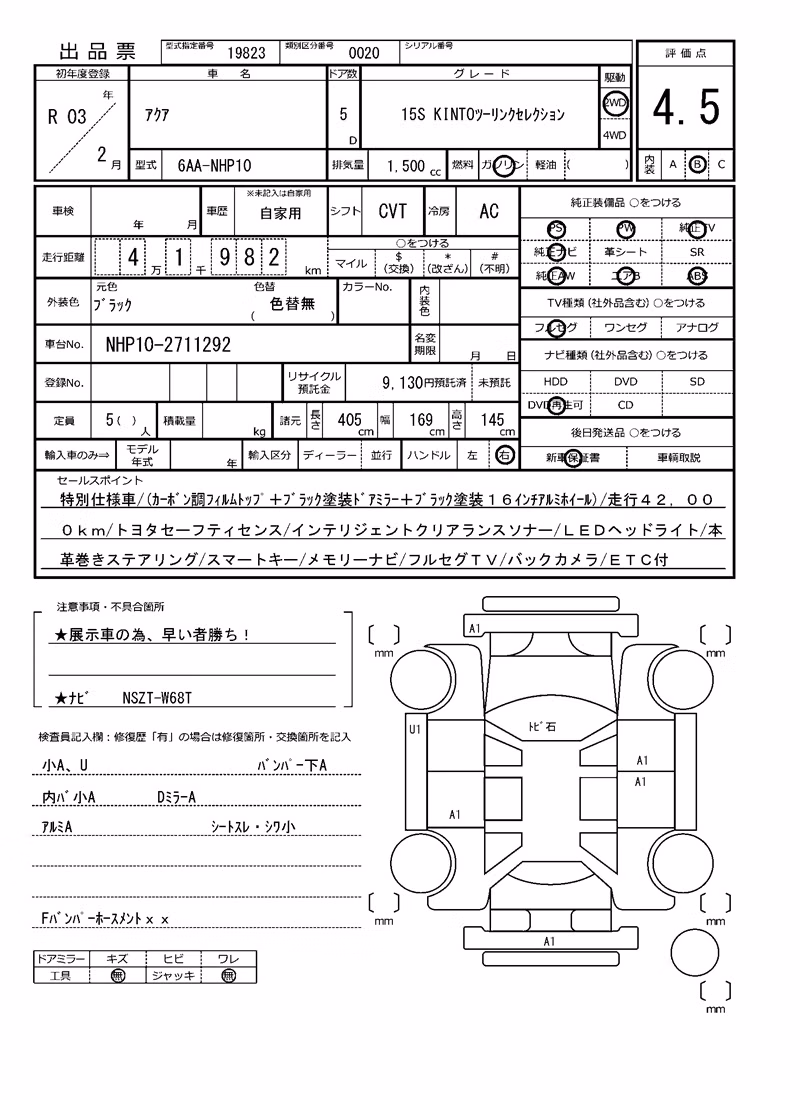 出品票 型式指定番号 19823 類別区分番号 0020 シリアル番号
評価点
初年度登録 車名 ドア数 グレード 駆動
R 03 年 2 月 アクア 5 D 15S KINTOツーリンクセレクション 2WD 4WD
4.5
型式 6AA-NHP10 排気量 1,500 cc 燃料 ガソリン 軽油 ( )
内装 A B C
車検 年 月 車歴 ※未記入は自家用 自家用 シフト CVT 冷房 AC
純正装備品 ○をつける
PS PW 純正TV
純正ナビ 革シート SR
純正AW エアB ABS
走行距離 4万 1千 982 km ○をつける
マイル $(交換) *(改ざん) #(不明)
外装色 元色 ブラック 色替 ( 色替無 ) カラーNo. 内装色
TV種類(社外品含む)○をつける
フルセグ ワンセグ アナログ
車台No. NHP10-2711292 名変期限 月 日
ナビ種類(社外品含む)○をつける
HDD DVD SD
DVD再生可 CD
登録No. リサイクル預託金 9,130円預託済 未預託
定員 5( )人 積載量 kg 諸元 長さ 405 cm 幅 169 cm 高さ 145 cm
後日発送品 ○をつける
新車保証書 車輌取説
輸入車のみ⇒ モデル年式 年 輸入区分 ディーラー 並行 ハンドル 左 右
セールスポイント
特別仕様車/(カーボン調フィルムトップ+ブラック塗装ドアミラー+ブラック塗装16インチアルミホイール)/走行42,00
0km/トヨタセーフティセンス/インテリジェントクリアランスソナー/LEDヘッドライト/本
革巻きステアリング/スマートキー/メモリーナビ/フルセグTV/バックカメラ/ETC付
注意事項・不具合箇所
★展示車の為、早い者勝ち!
★ナビ NSZT-W68T
検査員記入欄:修復歴「有」の場合は修復箇所・交換箇所を記入
小A、U バンパー下A
内バ小A DミラーA
アルミA シートスレ・シワ小
Fバンパーホースメントxx
ドアミラー キズ ヒビ ワレ
工具 無 ジャッキ 無
A1
mm
mm
U1
トビ石
A1
A1
A1
mm
mm
A1
mm